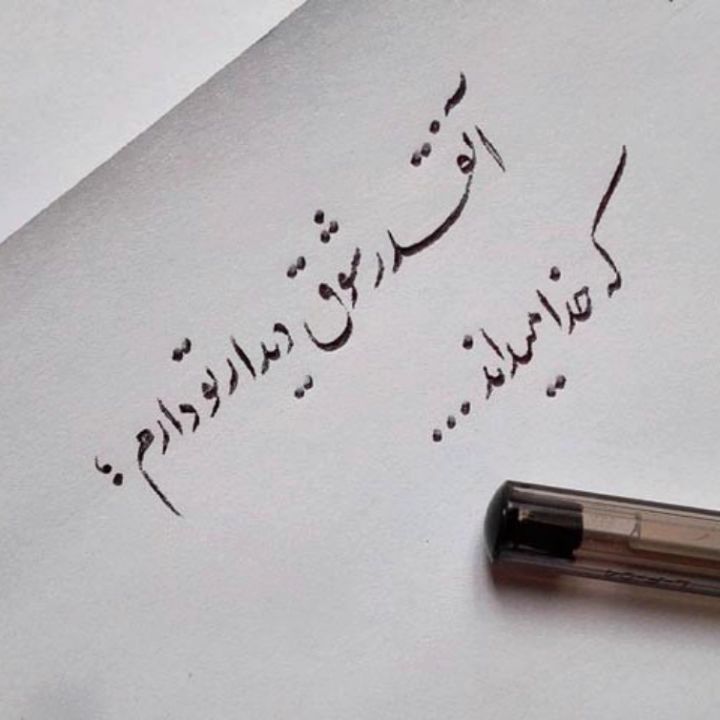 آنقدر شوق دیدار تو دارم؛
که خدا میداند...